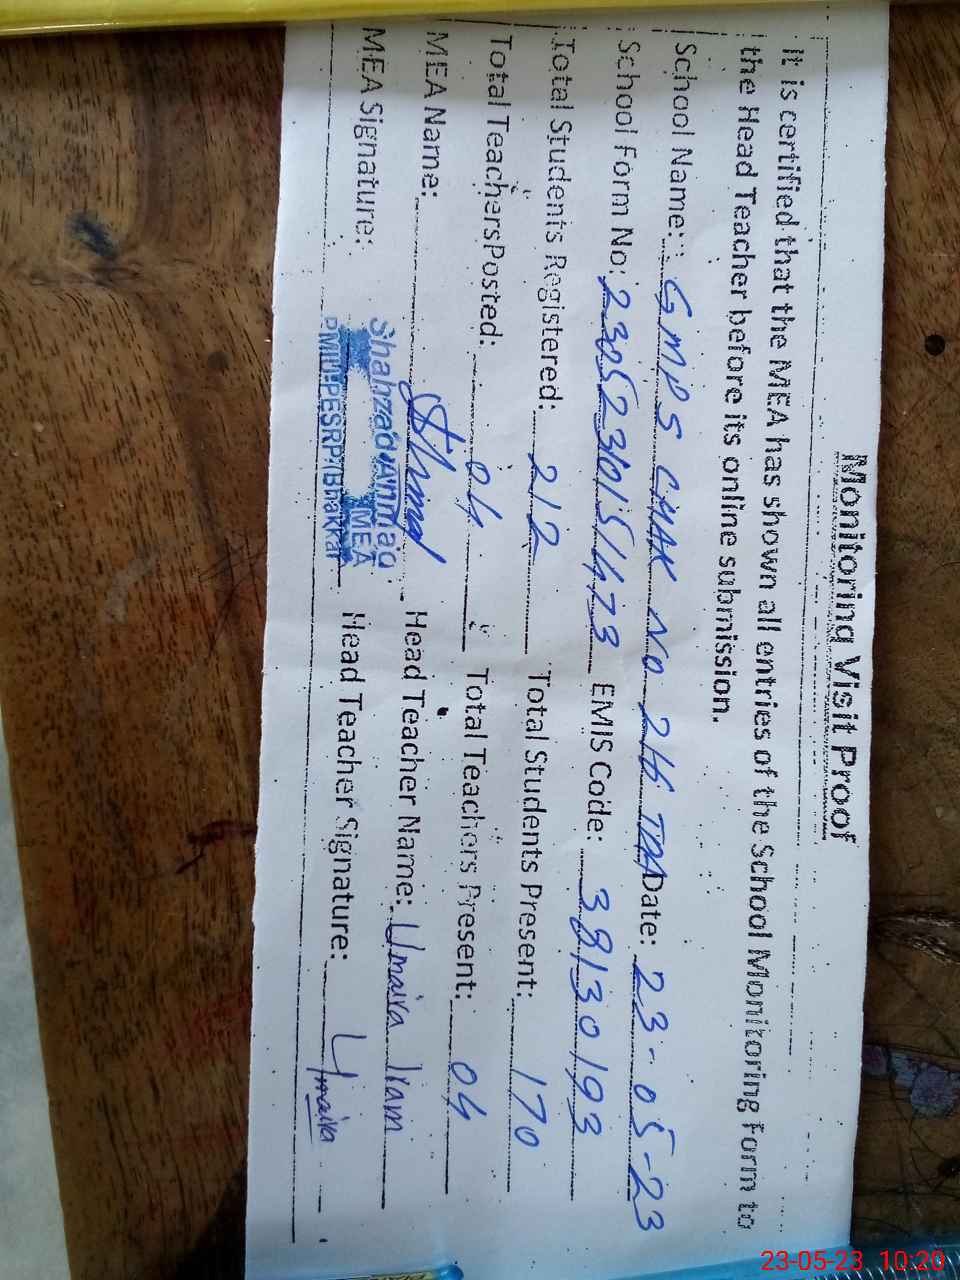 Monitoring Visit Proof
It is certified that the MEA has shown all entries of the School Monitoring Form to
the Head Teacher before its online submission.
School Name: GMPS CHAK NO 216 TDA Date: 23-05-23
School Form No: 23052310151473 EMIS Code: 38130193
Total Students Registered: 212 Total Students Present: 170
Total Teachers Posted: 04 Total Teachers Present: 04
MEA Name: Head Teacher Name: Umaira Iram
MEA Signature: Shahzad Ahmad Head Teacher Signature: Umaira
MEA
PMIU-PESRP/Bhakkar
23-05-23 10:20